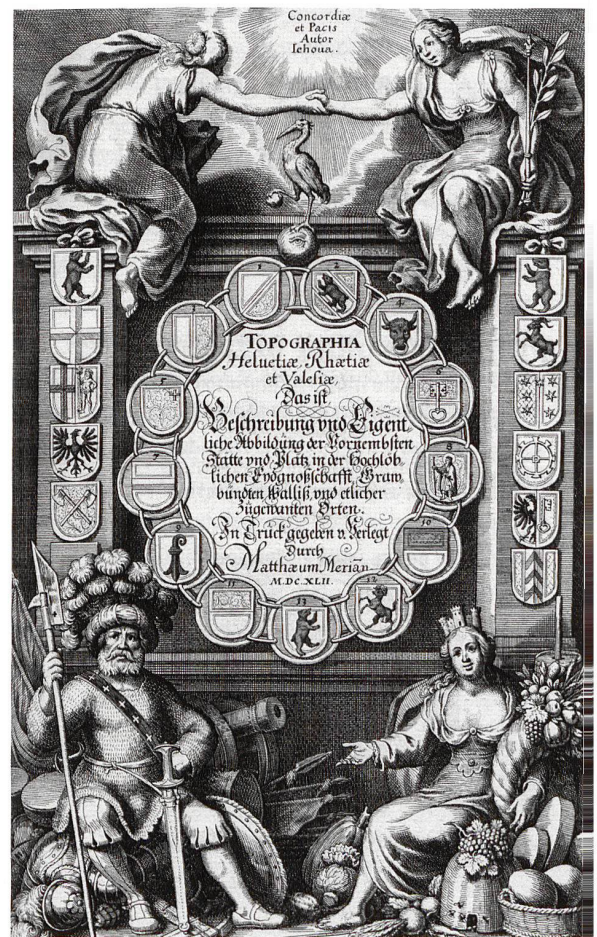 Concordiæ
et Pacis
Autor
Iehoua.
TOPOGRAPHIA
Helvetiæ, Rhætiæ
et Valesiæ,
Das ist
Beschreibung vnd Eigent
liche Abbildung der Vornembsten
Stätte vnd Plätz in der Hochlöb
lichen Eydgnoßschafft, Graw
bündten Walliß, vnd etlicher
Zugewanten Orten.
In Truck gegeben v. Verlegt
Durch
Matthæum Merian
M.DC.XLII.
1
2
3
4
5
6
7
8
9
10
11
12
13